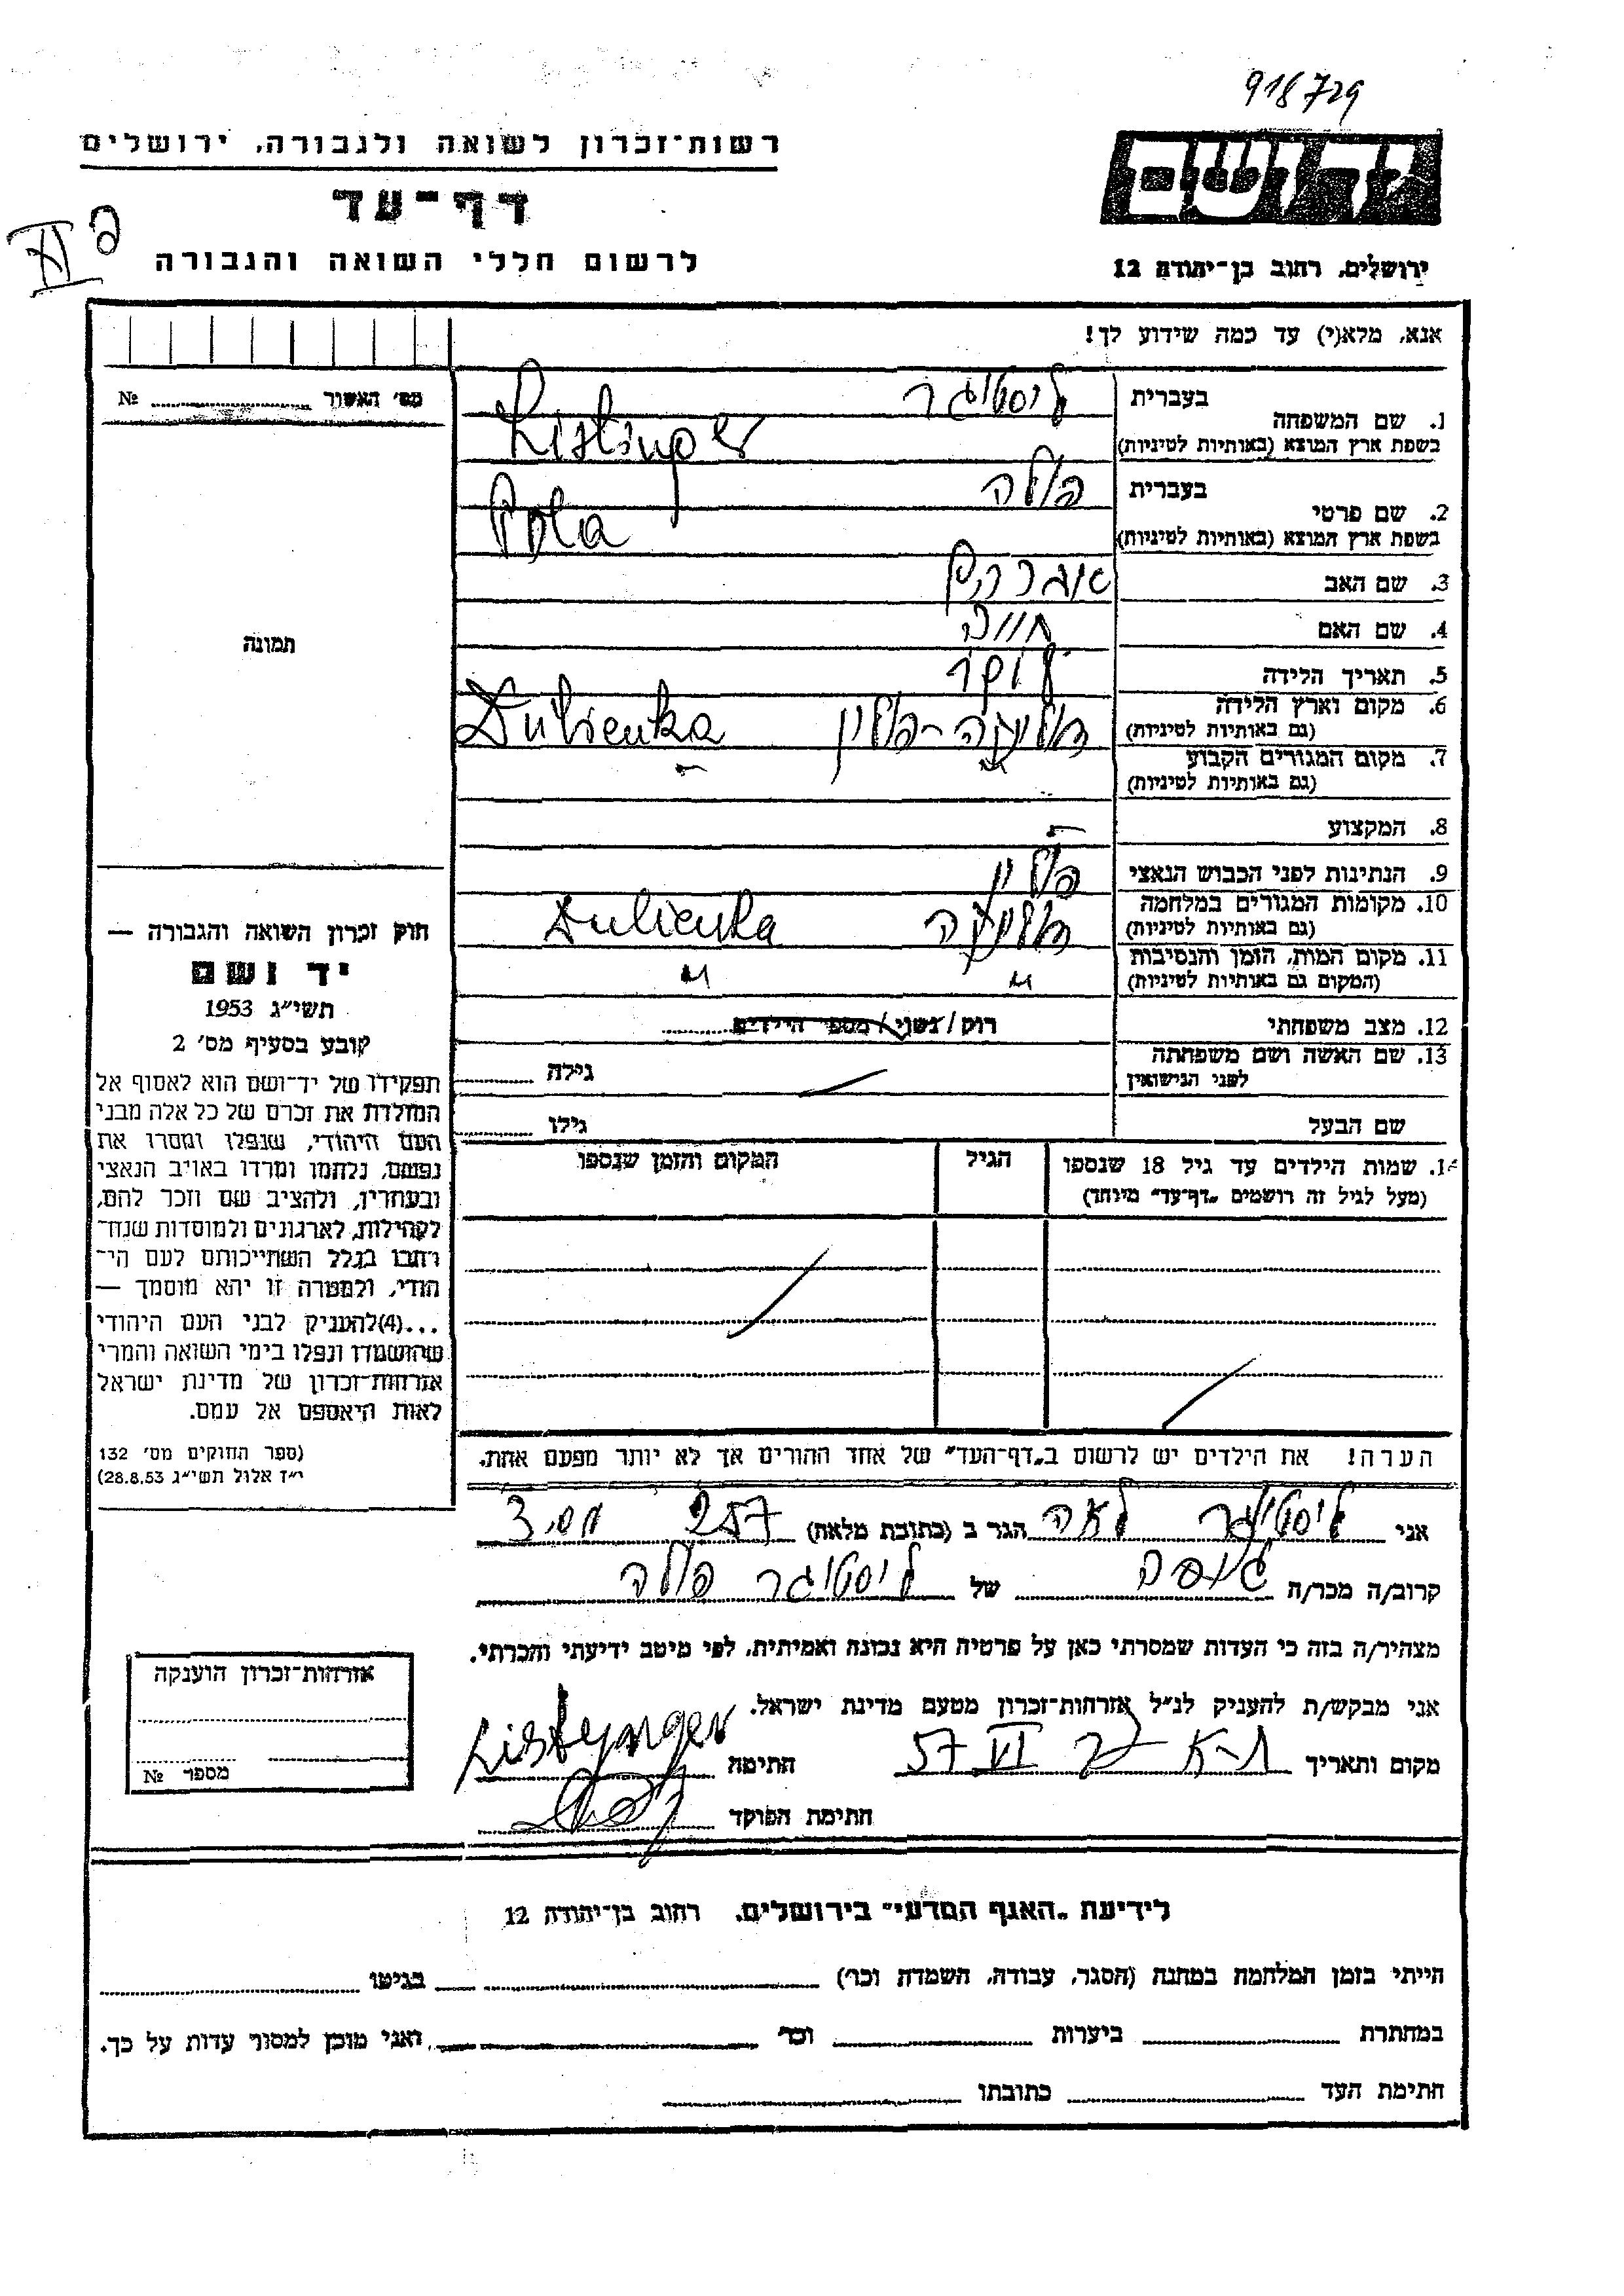 918729
רשות־זכרון לשואה ולגבורה, ירושלים
יד ושם
דף־עד
לרשום חללי השואה והגבורה
ירושלים, רחוב בן־יהודה 12
אנא, מלא(י) עד כמה שידוע לך!
מס׳ האשור № 
1. שם המשפחה בעברית ליסטיגר
בשפת ארץ המוצא (באותיות לטיניות) Listinger
2. שם פרטי בעברית פולה
בשפת ארץ המוצא (באותיות לטיניות) Pola
3. שם האב אברהם
4. שם האם חווה
תמונה
5. תאריך הלידה
6. מקום וארץ הלידה
(גם באותיות לטיניות) דוביענקה - פולין Dubienka
7. מקום המגורים הקבוע
(גם באותיות לטיניות)
8. המקצוע —
9. הנתינות לפני הכבוש הנאצי פולין
10. מקומות המגורים במלחמה
(גם באותיות לטיניות) דוביענקה Dubienka
11. מקום המות, הזמן והנסיבות
(המקום גם באותיות לטיניות) " "
12. מצב משפחתי רוק/נשוי/מספר הילדים
13. שם האשה ושם משפחתה
לפני הנישואין גילה
שם הבעל גילו
14. שמות הילדים עד גיל 18 שנספו הגיל המקום והזמן שנספו
(מעל לגיל זה רושמים „דף־עד״ מיוחד)
חוק זכרון השואה והגבורה —
יד ושם
תשי״ג 1953
קובע בסעיף מס׳ 2
תפקידו של יד־ושם הוא לאסוף אל
המולדת את זכרם של כל אלה מבני
העם היהודי, שנפלו ומסרו את
נפשם, נלחמו ומרדו באויב הנאצי
ובעוזריו, ולהציב שם וזכר להם,
לקהילות, לארגונים ולמוסדות שנח־
רבו בגלל השתייכותם לעם הי־
הודי, ולמטרה זו יהא מוסמך —
...(4)להעניק לבני העם היהודי
שהושמדו ונפלו בימי השואה והמרי
אזרחות־זכרון של מדינת ישראל
לאות היאספם אל עמם.
(ספר החוקים מס׳ 132
י״ז אלול תשי״ג 28.8.53)
הערה! את הילדים יש לרשום ב„דף־העד״ של אחד ההורים אך לא יותר מפעם אחת.
אני ליסטיגר לאה הגר ב (כתובת מלאה) 257
קרוב/ה מכר/ה גיסה של ליסטיגר פולה
מצהיר/ה בזה כי העדות שמסרתי כאן על פרטיה היא נכונה ואמיתית, לפי מיטב ידיעתי והכרתי.
אני מבקש/ת להעניק לנ״ל אזרחות־זכרון מטעם מדינת ישראל.
מקום ותאריך ת-א VI 57 חתימה Listynger
חתימת הפוקד
אזרחות־זכרון הוענקה
מספר №
לידיעת „האגף המדעי״ בירושלים, רחוב בן־יהודה 12
הייתי בזמן המלחמה במחנה (הסגר, עבודה, השמדה וכר׳) בגיטו
במחתרת ביערות וכר׳ ואני מוכן למסור עדות על כך.
חתימת העד כתובתו